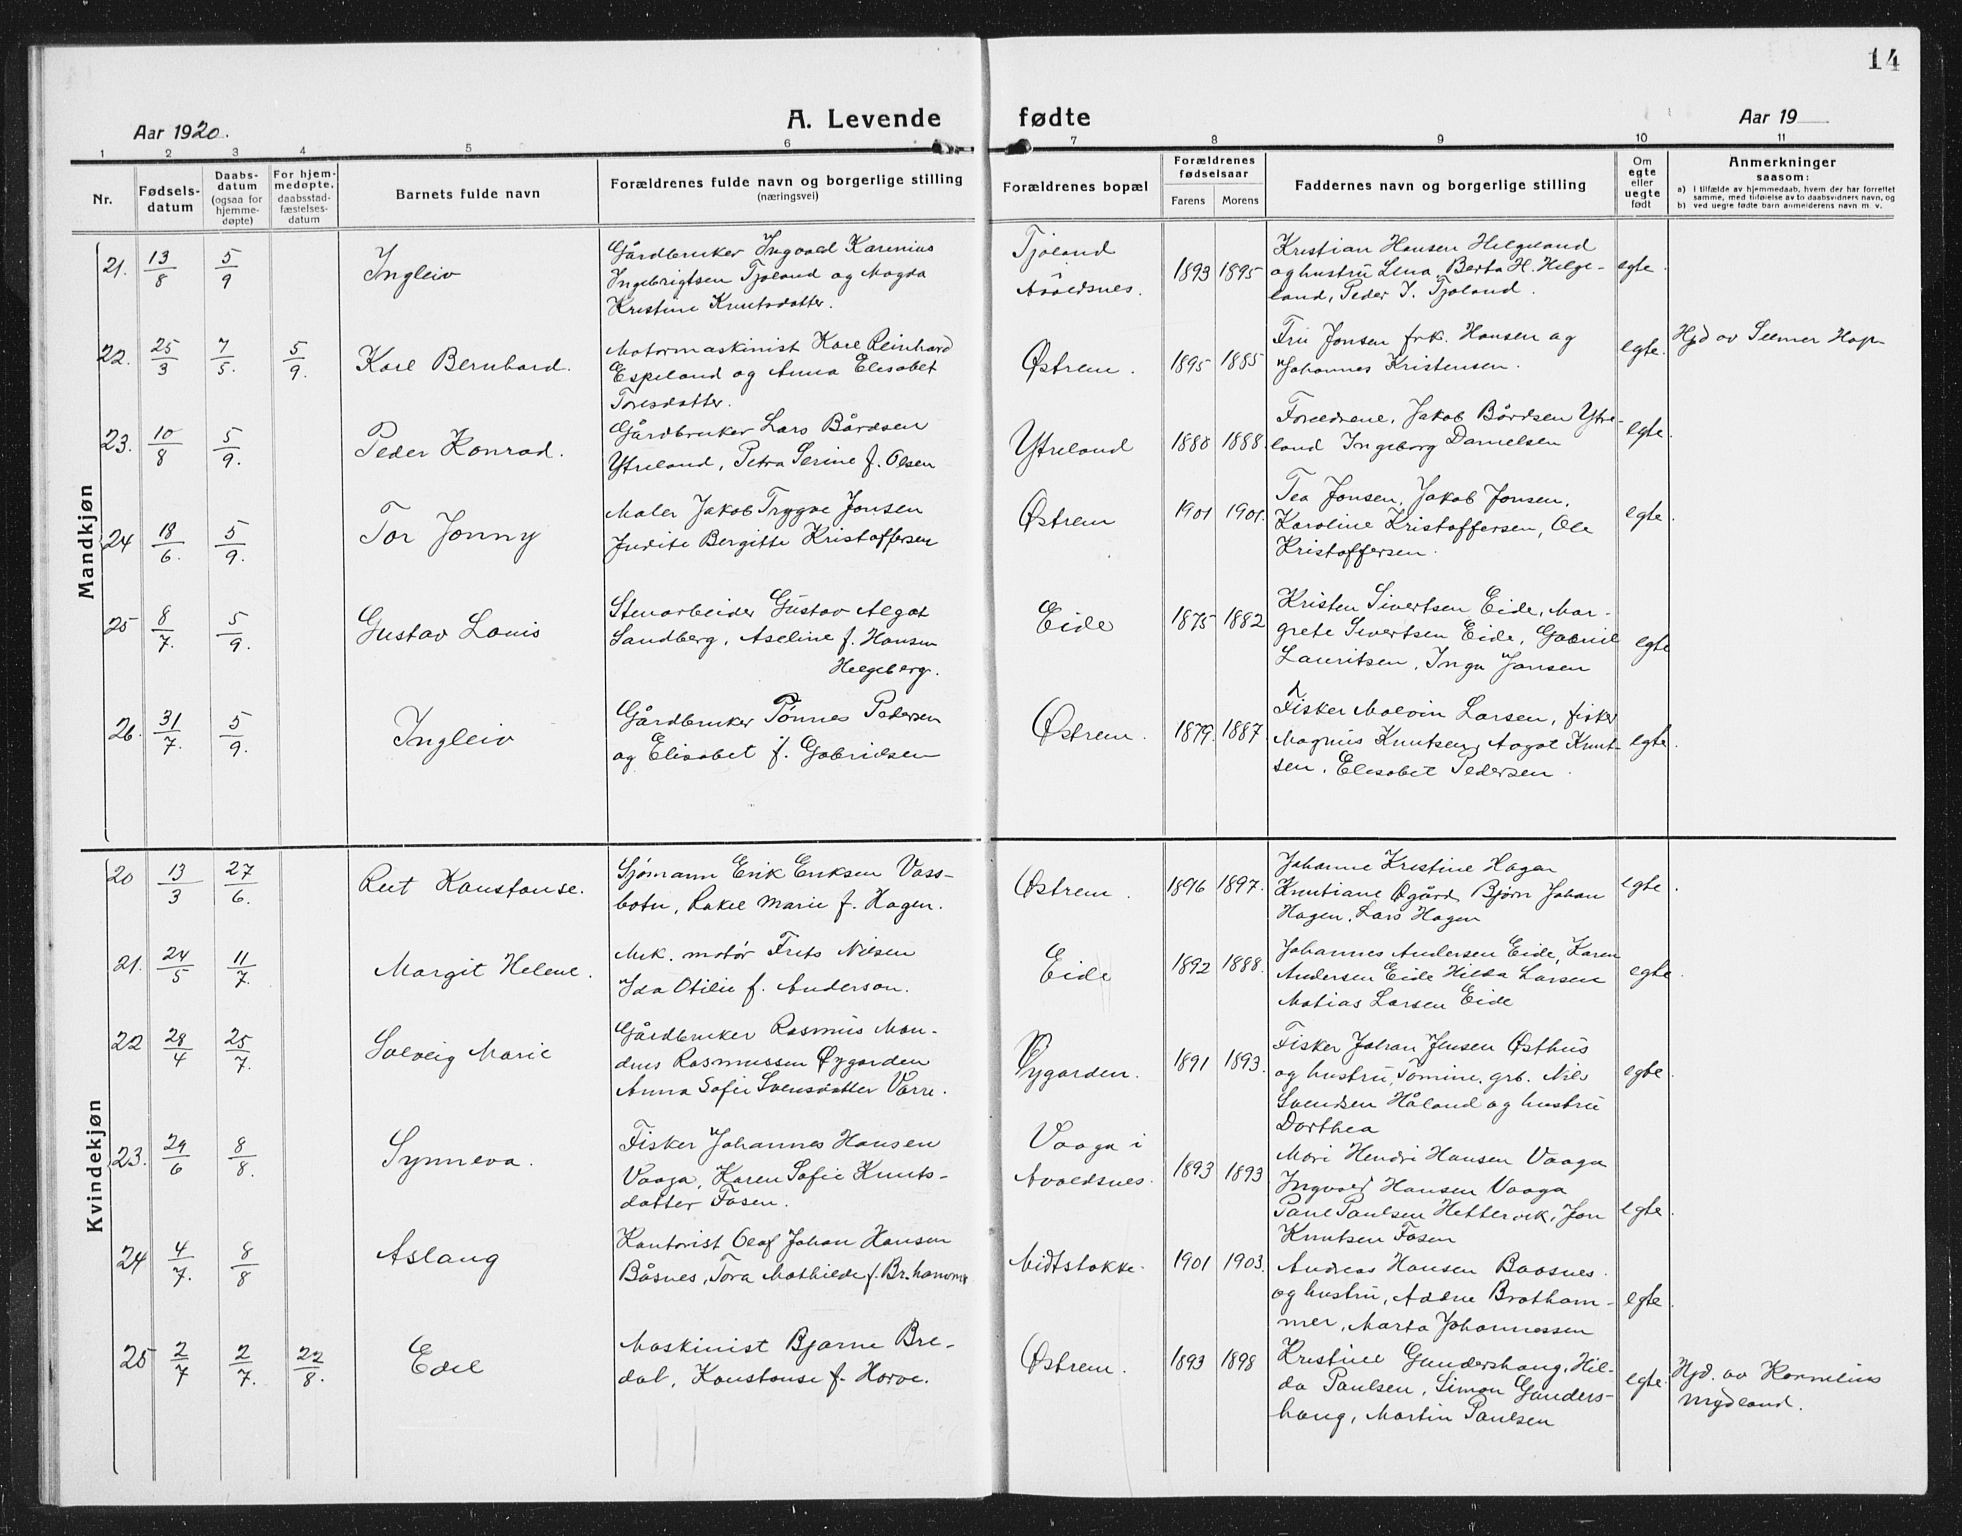 14
Aar 1920.
A. Levende fødte
Aar 19
1 2 3 4 5 6 7 8 9 10 11
Nr.
Fødsels-
datum
Daabs-
datum
(ogsaa for
hjemme-
døpte)
For hjem-
medøpte,
daabsstad-
fæstelses-
datum
Barnets fulde navn
Forældrenes fulde navn og borgerlige stilling
(næringsvei)
Forældrenes bopæl
Forældrenes
fødselsaar
Farens Morens
Faddernes navn og borgerlige stilling
Om
egte
eller
uegte
født
Anmerkninger
saasom:
a) I tilfælde av hjemmedaab, hvem der har forrettet
samme, med tilføielse av to daabsvidners navn, og
b) ved uegte fødte barn anmelderens navn m. v.
Mandkjøn
21. 13/8 5/9
Ingleiv
Gårdbruker Ingvald Karenius
Ingebrigtsen Tjøland og Magda
Kristine Knutsdatter.
Tjøland
Avaldsnes.
1893 1895
Kristian Hansen Helgeland
og hustru Lena, Berta H. Helge-
land, Peder I. Tjøland.
egte.
22. 25/3 7/5. 5/9.
Karl Bernhard.
Motormaskinist Karl Reinhard
Espeland og Anna Elisabet
Toresdatter.
Østrem.
1895 1885
Fru Jonsen frk. Hansen og
Johannes Kristensen.
egte.
Hjd av Selmer Hop-
23. 10/8 5/9.
Peder Konrad.
Gårdbruker Lars Bårdsen
Ytreland, Petra Serine f. Olsen
Ytreland
1880 1888.
Forældrene, Jakob Bårdsen Ytre-
land Ingeborg Danielsen
egte.
24 18/6. 5/9.
Tor Jonny
Maler Jakob Trygve Jonsen
Judite Bergitte Kristoffersen
Østrem
1901 1901.
Tea Jonsen, Jakob Jonsen,
Karoline Kristoffersen, Ole
Kristoffersen.
egte.
25 8/7. 5/9.
Gustav Louis
Stenarbeider Gustav Algot
Sandberg, Aseline f. Hansen
Helgeberg.
Eide
1875 1882
Kristen Sivertsen Eide, Mar-
grete Sivertsen Eide, Gabriel
Lauritsen, Inga Jansen
egte
26. 31/7. 5/9.
Ingleiv
Gårdbruker Tønnes Pedersen
og Elisabet f. Gabrielsen
Østrem.
1879. 1887.
Fisker Malvin Larsen, fisker
Magnus Knutsen, Aagot Knut-
sen, Elisabet Pedersen.
egte.
Kvindekjøn
20 13/3 27/6.
Rut Konstanse.
Sjømann Erik Eriksen Vass-
botn, Rakel Marie f. Hagen.
Østrem.
1896 1897.
Johanne Kristine Hagen
Knutiane Øgård, Bjørn Johan
Hagen, Lars Hagen
egte.
21. 24/5 11/7.
Margit Helene.
Mek. motor Frits Nilsen
Ida Otilie f. Anderson.
Eide
1892 1888.
Johannes Andersen Eide, Karen
Andersen Eide Hilda Larsen
Matias Larsen Eide
egte.
22 28/4 25/7.
Solveig Marie
Gårdbruker Rasmus Man-
dius Rasmussen Øygarden
Anna Sofie Svensdatter Varre.
Øygarden.
1891 1893.
Fisker Johan Jensen Østhus
og hustru, Tomine, grb. Nils
Svendsen Håland og hustru
Dorthea
egte.
23. 29/6 8/8.
Synneva.
Fisker Johannes Hansen
Vaaga, Karen Sofie Knuts-
datter Fosen.
Vaaga i
Avaldsnes.
1893 1893
Mari Hendri Hansen Vaaga
Ingvald Hansen Vaaga
Paul Paulsen Hettervik, Jon
Knutsen Fosen
egte.
24 4/7. 8/8
Aslaug
Kontorist Olaf Johan Hansen
Båsnes, Tora Mathilde f. Br.hammer
Midtstokke.
1901 1903.
Andreas Hansen Baasnes.
og hustru, Adine Bratham-
mer, Marta Johannessen
egte.
25 2/7 2/7. 22/8.
Edel
Maskinist Bjarne Bre-
dal, Konstanse f. Horve.
Østrem.
1893 1898
Kristine Gundershaug, Hil-
da Paulsen, Simon Gunders-
haug, Martin Paulsen
egte.
Hjd. av Kornelius
Mydland.